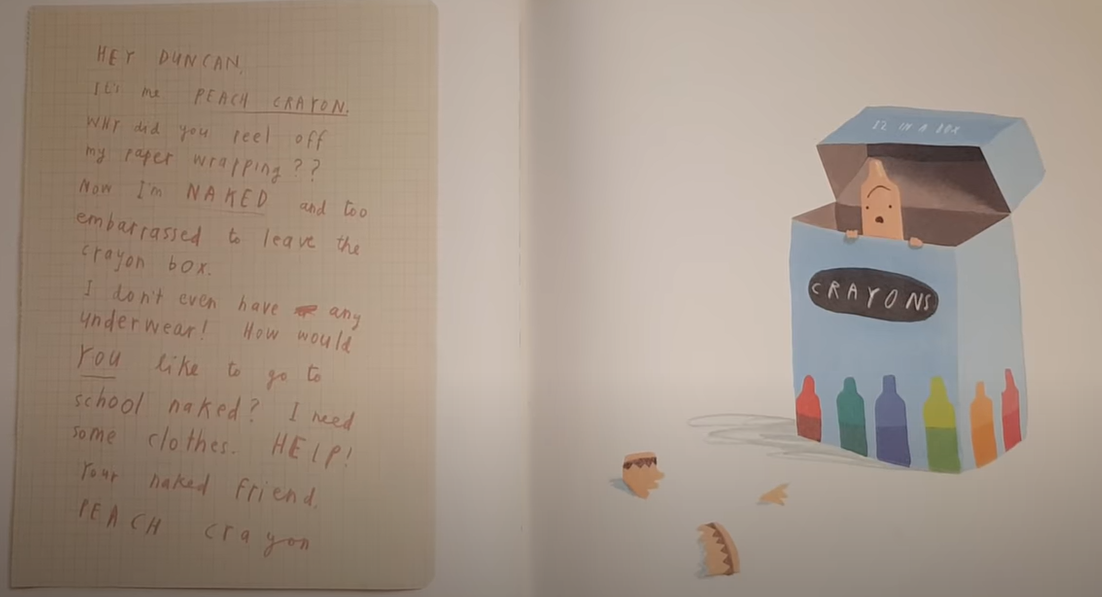 HEY DUNCAN,
It's me PEACH CRAYON.
WHY did you peel off
my paper wrapping??
Now I'm NAKED and too
embarrassed to leave the
crayon box.
I don't even have any
underwear! How would
YOU like to go to
school naked? I need
some clothes. HELP!
Your naked friend,
PEACH crayon
12 IN A BOX
CRAYONS